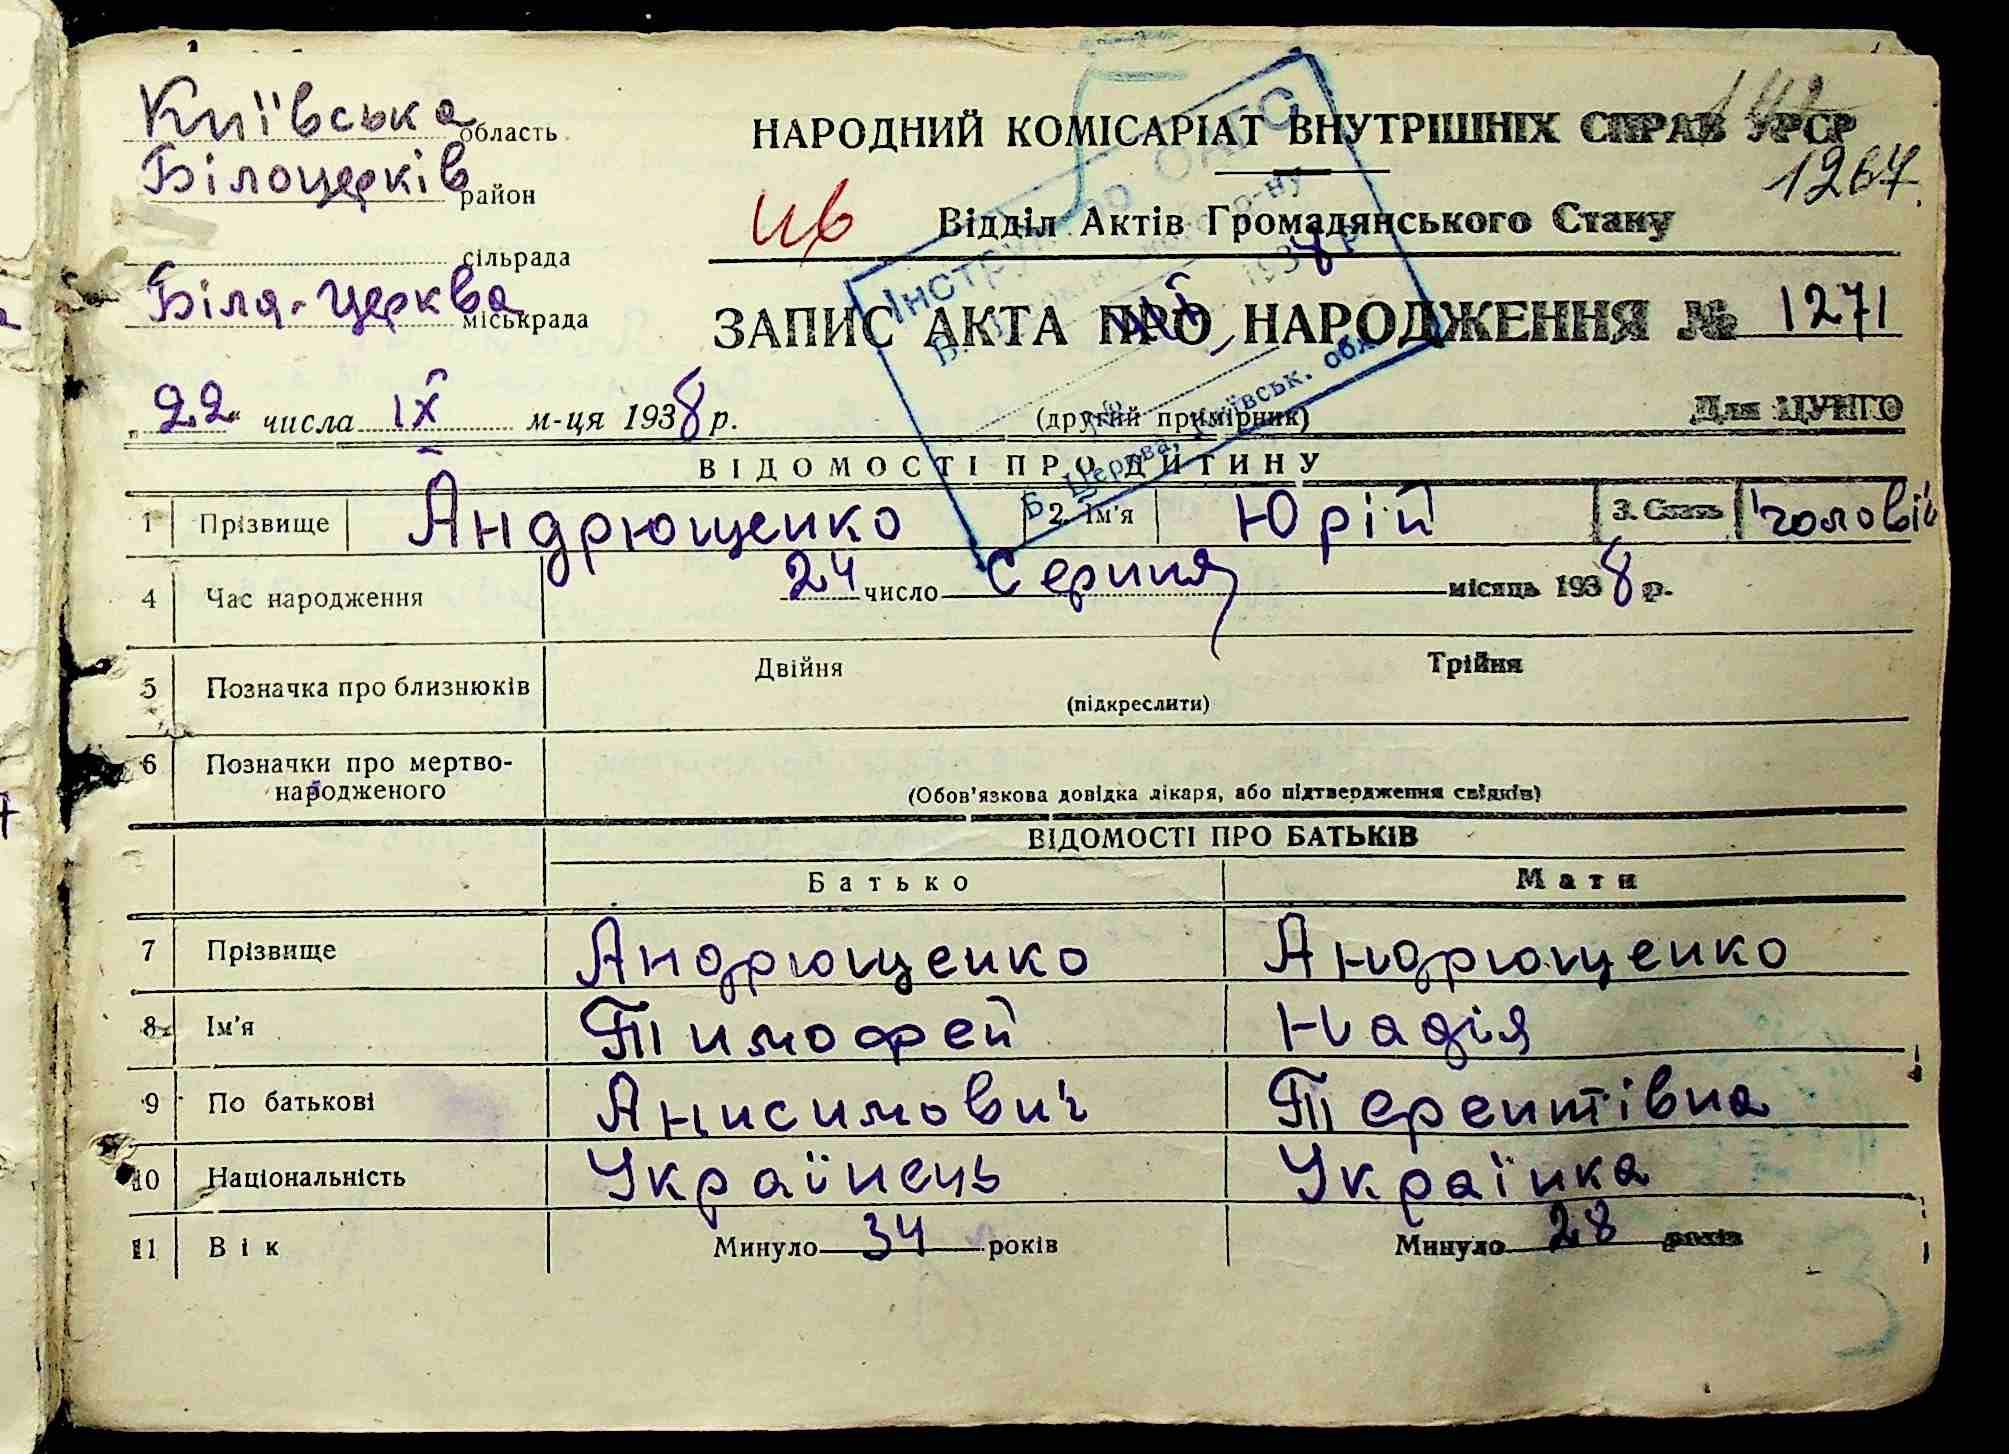 Київська область
Білоцерків район
сільрада
Біла-Церква міськрада
НАРОДНИЙ КОМІСАРІАТ ВНУТРІШНІХ СПРАВ УРСР
1267.
Відділ Актів Громадянського Стану
ЗАПИС АКТА ПРО НАРОДЖЕННЯ № 1271
„22" числа ІХ м-ця 1938 р.
(другий примірник)
Для ЦУНГО
Інструктор ОАГС
р-ну
1938 р.
Б. Церква, Київськ. обл.
ВІДОМОСТІ ПРО ДИТИНУ
1 Прізвище Андрющенко 2. Ім'я Юрій 3. Стать чоловіч
4 Час народження 24 число Серпня місяць 1938 р.
5 Позначка про близнюків Двійня Трійня
(підкреслити)
6 Позначки про мертво-
народженого
(Обов'язкова довідка лікаря, або підтвердження свідків)
ВІДОМОСТІ ПРО БАТЬКІВ
Батько Мати
7 Прізвище Андрющенко Андрющенко
8 Ім'я Тимофей Надія
9 По батькові Анисимович Терентівна
10 Національність Українець Українка
11 Вік Минуло 34 років Минуло 28 років
3